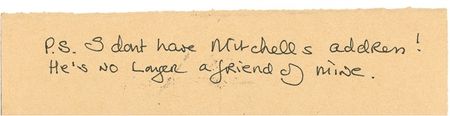 P.S. I dont have Mitchells address!
He's no longer a friend of mine.